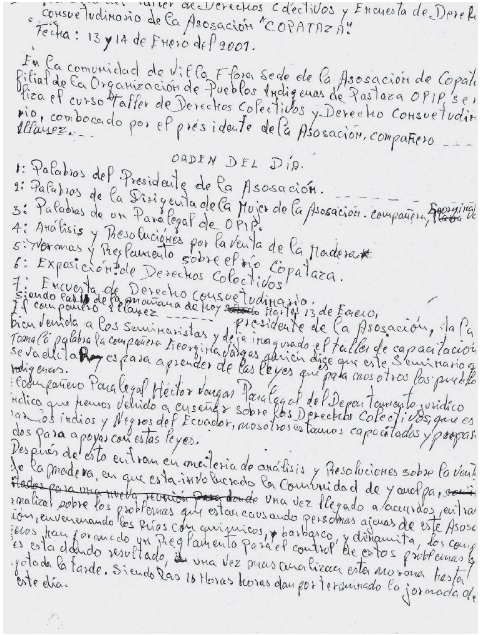 Taller de Derechos Colectivos y Encuesta de Dere
consuetudinario de la Asosación "COPATAZA."
Fecha: 13 y 14 de Enero del 2001.
En la comunidad de Villa Flora Sede de la Asosación de Copata
filial de la Organización de Pueblos Indigenas de Pastaza OPIP, se r
liza el curso Taller de Derechos Colectivos y Derecho Consuetudin
rio, combocado por el presidente de la Asosación, compañero
Illanez..
ORDEN DEL DÍA.
1: Palabras del Presidente de la Asosación.
2: Palabras de la Dirigenta de la Mujer de la Asosación. compañera, Georgina
3: Palabras de un Paralegal de OPIP.
4: Análisis y Resoluciones por la venta de la Madera
5: Normas y Reglamento sobre el río Copataza.
6: Exposición de Derechos Colectivos
7: Encuesta de Derecho consuetudinario.
Siendo las de la mañana de hoy Martes 13 de Enero,
El compañero Illanez presidente de la Asosación, da la
bien venida a los Seminaristas y deja inagurado el taller de capacitación
Tomaló palabra la compañera Georgina Vargas quien dise que este Seminario q
se va dictar es para aprender de las leyes que para nosotros los pueblo
indigenas.
Compañero Paralegal Héctor Vargas Paralegal del Departamento jurídico
indica que hemos venido a enseñar sobre los Derechos Colectivos, que es
los indios y Negros del Ecuador, nosotros estamos capacitados y prepara
dos para apoyar con estas leyes.
Después de esto entran en materia de análisis y Resoluciones sobre la vent
de la madera, en que esta involucrado la Comunidad de Yamalpa,
una vez llegado a acuerdos, entran
analizar sobre los problemas que estan causando personas ajenas de este Asosa
ción, envenenando los Ríos con quimicos, barbasco, y dinamita, los comp
han formando un Reglamento para el control de estos problemas
es esta dando resultado, una vez mas analizan esta norma hasta
la tarde. Siendo las 16 Horas horas dan por terminado la jornada de
este dia.